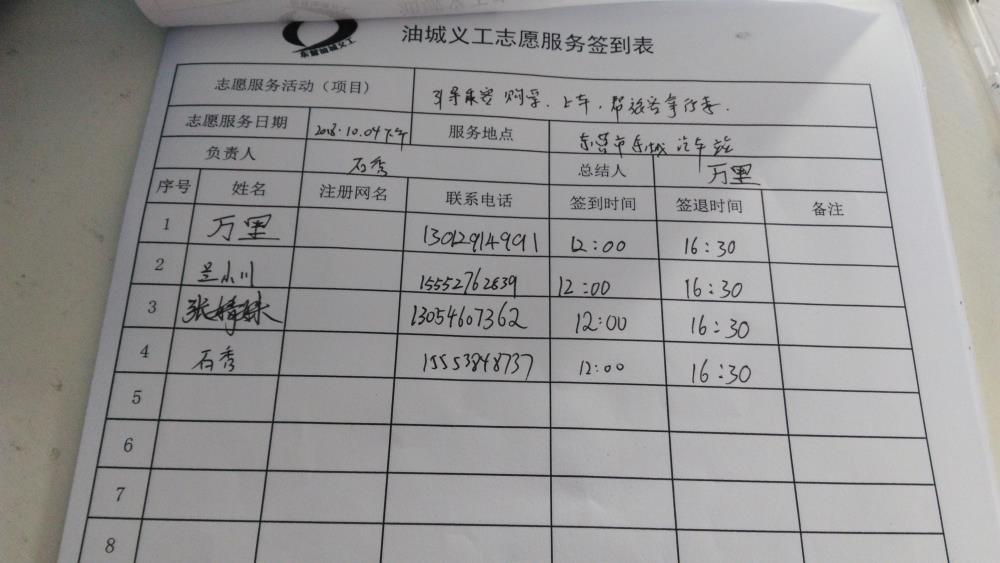 东营油城义工
油城义工志愿服务签到表
志愿服务活动（项目） 引导乘客购票、上车，帮旅客拿行李.
志愿服务日期 2018.10.04下午 服务地点 东营市东城汽车站
负责人 石秀 总结人 万里
序号 姓名 注册网名 联系电话 签到时间 签退时间 备注
1 万里 13012914991 12:00 16:30
2 小川 15552762839 12:00 16:30
3 张婧姝 13054607362 12:00 16:30
4 石秀 15553848737 12:00 16:30
5
6
7
8